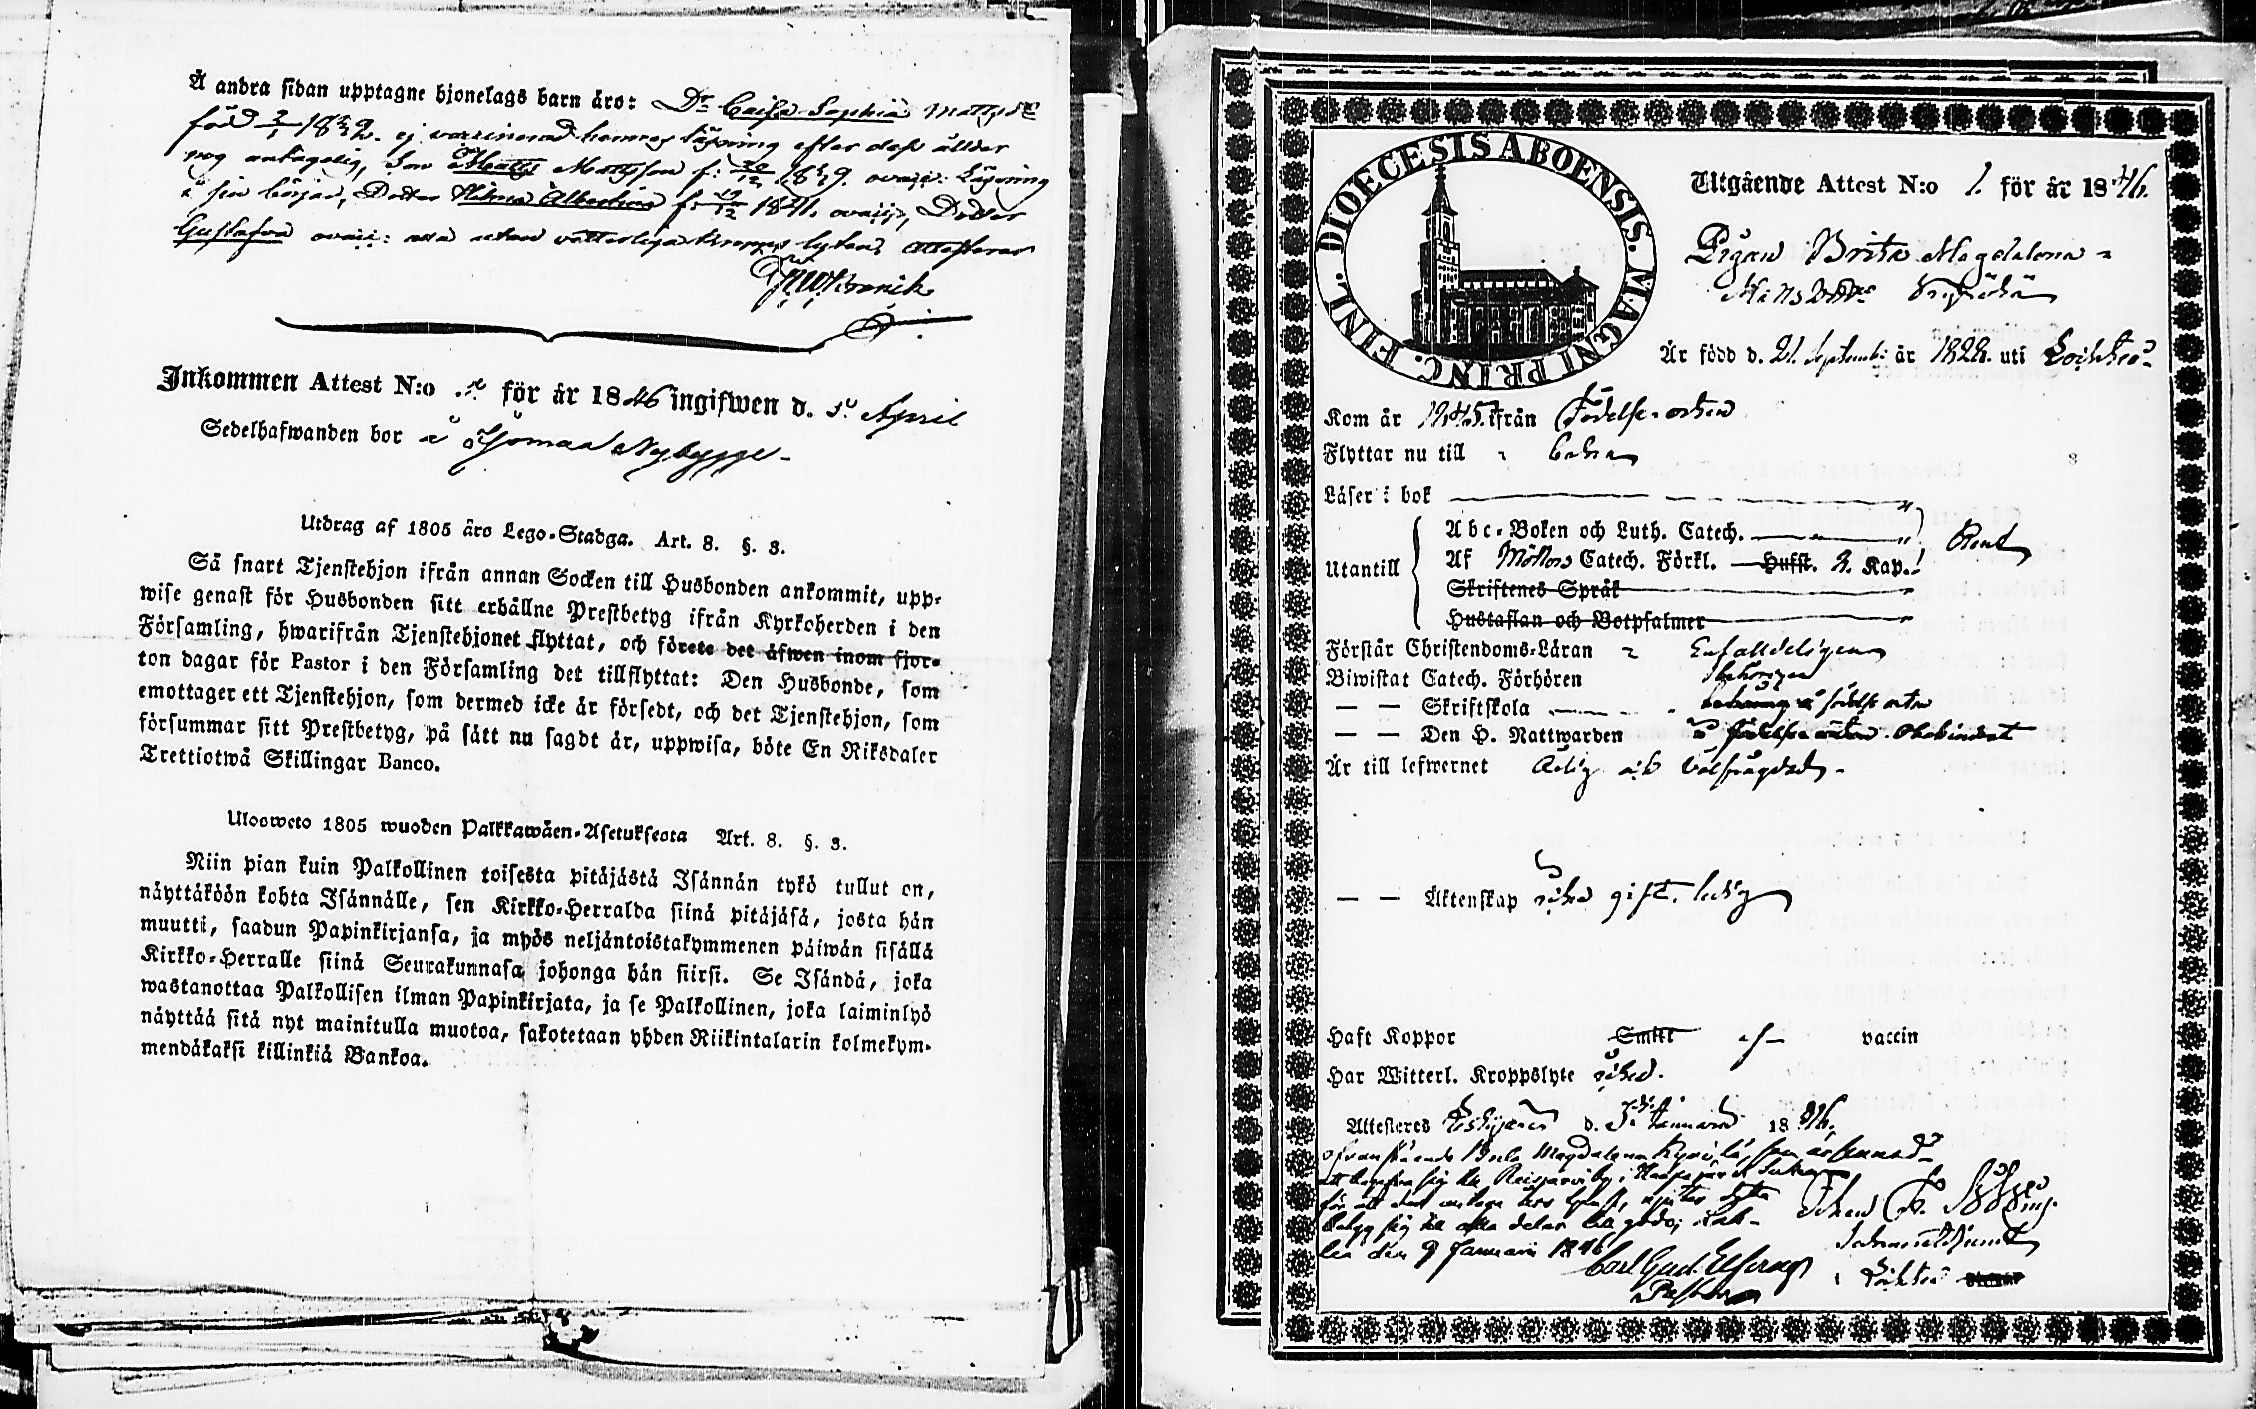 Å andra sidan upptagne hjonelags barn äro: Dr Caisa Sophia Mattsdr
född 2/1 1832. ej vaccinerad hennes läsning efter dess ålder
nog antagelig, Son Matts Mattsson f: 20/12 1839. ovacc: Läsning
i sin början, Dotter Hilma Albertina f: 19/12 1841. ovacc, Dotter
Gustafva ovacc: alla utan vetterliga kropps lyten, attesterar
Inkommen Attest N:o för år 1846 ingifwen d. 5 April
Sedelhafwanden bor å Nybygge
Utdrag af 1805 års Lego-Stadga. Art. 8. §. 3.
Så snart Tjenstehjon ifrån annan Socken till Husbonden ankommit, upp-
wise genast för Husbonden sitt erhållne Prestbetyg ifrån Kyrkoherden i den
Församling, hwarifrån Tjenstehjonet flyttat, och förete det äfwen inom fjor-
ton dagar för Pastor i den Församling det tillflyttat: Den Husbonde, som
emottager ett Tjenstehjon, som dermed icke är försedt, och det Tjenstehjon, som
försummar sitt Prestbetyg, på sätt nu sagdt är, uppwisa, böte En Riksdaler
Trettiotwå Skillingar Banco.
Uloosweto 1805 wuoden Palkkawäen-Asetuksesta Art. 8. §. 3.
Niin pian kuin Palkollinen toisesta pitäjästä Isännän tykö tullut on,
näyttäköön kohta Isännälle, sen Kirkko-Herralda siinä pitäjäsä, josta hän
muutti, saadun Papinkirjansa, ja myös neljäntoistakymmenen päiwän sisällä
Kirkko-Herralle siinä Seurakunnasa johonga hän siirsi. Se Isändä, joka
wastanottaa Palkollisen ilman Papinkirjata, ja se Palkollinen, joka laiminlyö
näyttää sitä nyt mainitulla muotoa, sakotetaan yhden Riikintalarin kolmekym-
mendäkaksi killinkiä Bankoa.
DIOECESIS ABOENSIS. MAGNI PRINC. FINL.
Utgående Attest N:o 1. för år 1846.
Pigan Brita Magdalena
Mattsdotter
Är född d. 21. September år 1822. uti Lochteå
Kom år 1845. ifrån Födelse orten
Flyttar nu till
Läser i bok
Utantill
Abc-Boken och Luth. Catech.
Af Möllers Catech. Förkl. Hufst. 2. Kap.
Rent
Skriftenes Språk
Hustaflan och Botpsalmer
Förstår Christendoms-Läran Enfalldeligen
Biwistat Catech. Förhören
— — Skriftskola å födelse orten
— — Den H. Nattwarden å födelse orten. Obehindrat
Är till lefwernet Ärlig och välfrägdad
— — Äktenskap icke gift. ledig
Haft Koppor Smitt vaccin
Har Witterl. Kroppslyte icke.
Attesteras d. 3 Januarii 1846.
ofvanstående Brita Magdalena som är sinnad
att begifva sig till Reisjärvi by i Haapajärvi Socken
för att der antaga
den 9 Januari 1846
Carl Gust.
Pastor
Johan
i Lochteå